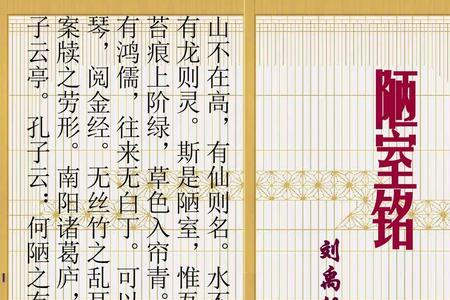 陋室铭
刘禹
山不在高，有仙则名。水不
有龙则灵。斯是陋室，惟吾
苔痕上阶绿，草色入帘青。
有鸿儒，往来无白丁。可以
琴，阅金经。无丝竹之乱耳
案牍之劳形。南阳诸葛庐，
子云亭。孔子云：何陋之有